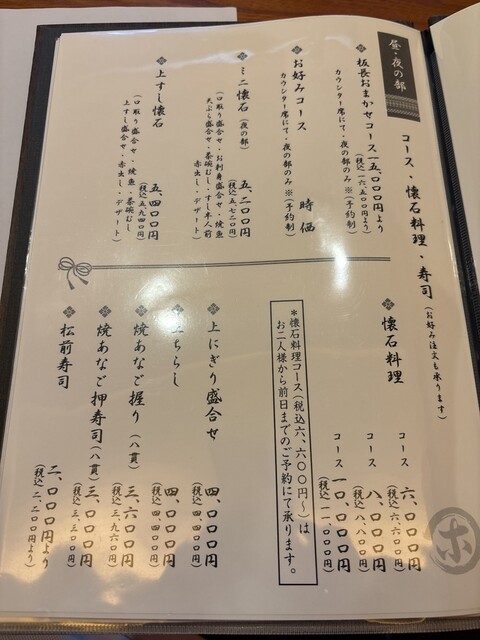 昼・夜の部
コース・懐石料理・寿司(お好み注文も承ります)
板長おまかせコース 一五、〇〇〇円より
(税込 一六、五〇〇円より)
カウンター席にて・夜の部のみ※(予約制)
お好みコース 時価
カウンター席にて・夜の部のみ※(予約制)
ミニ懐石(夜の部) 五、二〇〇円
(税込 五、七二〇円)
(口取り盛合せ・お刺身盛合せ・焼魚
天ぷら盛合せ・茶碗むし・すし半人前
赤出し・デザート)
上すし懐石 五、四〇〇円
(税込 五、九四〇円)
(口取り盛合せ・焼魚・茶碗むし
上すし盛合せ・赤出し・デザート)
懐石料理
コース 六、〇〇〇円
(税込 六、六〇〇円)
コース 八、〇〇〇円
(税込 八、八〇〇円)
コース 一〇、〇〇〇円
(税込 一一、〇〇〇円)
*懐石料理コース(税込六、六〇〇円〜)は
お二人様から前日までのご予約にて承ります。
上にぎり盛合せ 四、〇〇〇円
(税込 四、四〇〇円)
ちらし 四、〇〇〇円
(税込 四、四〇〇円)
焼あなご握り(八貫) 三、六〇〇円
(税込 三、九六〇円)
焼あなご押寿司(八貫) 三、〇〇〇円
(税込 三、三〇〇円)
松前寿司 二、〇〇〇円より
(税込 二、二〇〇円より)
ホ